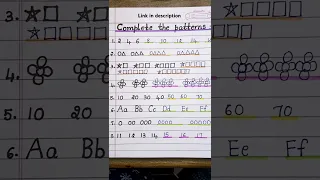 Link in description
Complete the patterns
1. 2 4 6 8 10 12 14
2.
3.
4.
5. 10 20 30 40 50 60 70
6. Aa Bb Cc Dd Ee Ff
7. 0 00 000
8. 11 12 13 14 15 16 17
3.
4.
5. 10 20
60 70
6. Aa Bb
Ee Ff